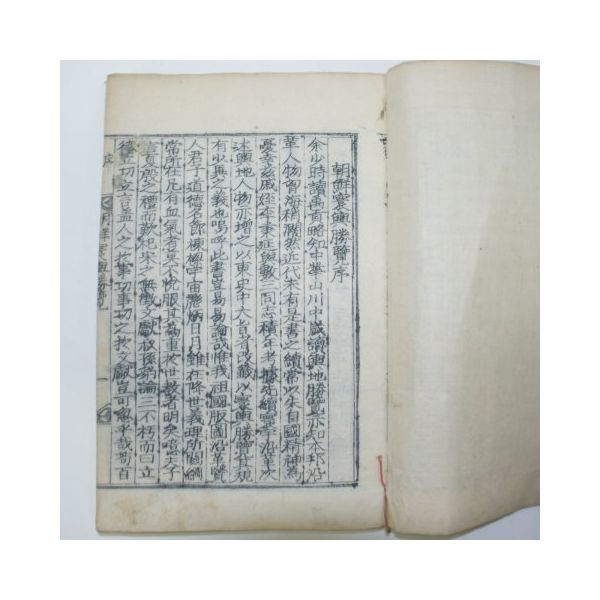 朝鮮寰輿勝覽序
余少時讀禹貢略知中華山川中歲讀輿地勝覽亦知本邦沿
革人物習海稱勝然近代未有是書之續常以朱自國精神為
憂幸玆戚姪李秉延與數三同志積年考據先續疆率沿革次
述輿地人物亦增之以東史中大旨省改藏以寰輿勝覽其規
有少異之義也嗚呼此書豈易論哉惟我祖國版圖沿革暨
人君子道德名節棟樑宇宙炳日月雖在降世義理所關綱
常所在凡有血氣者莫不悅服其為重於世敎者明矣噫夫子
言夏殷之禮而歎杞宋之無徵文獻叔孫豹論三不朽而曰立
德立功立言蓋人之於事功事功之於文獻豈可忽乎哉苟百
序
朝鮮寰輿勝覽
一